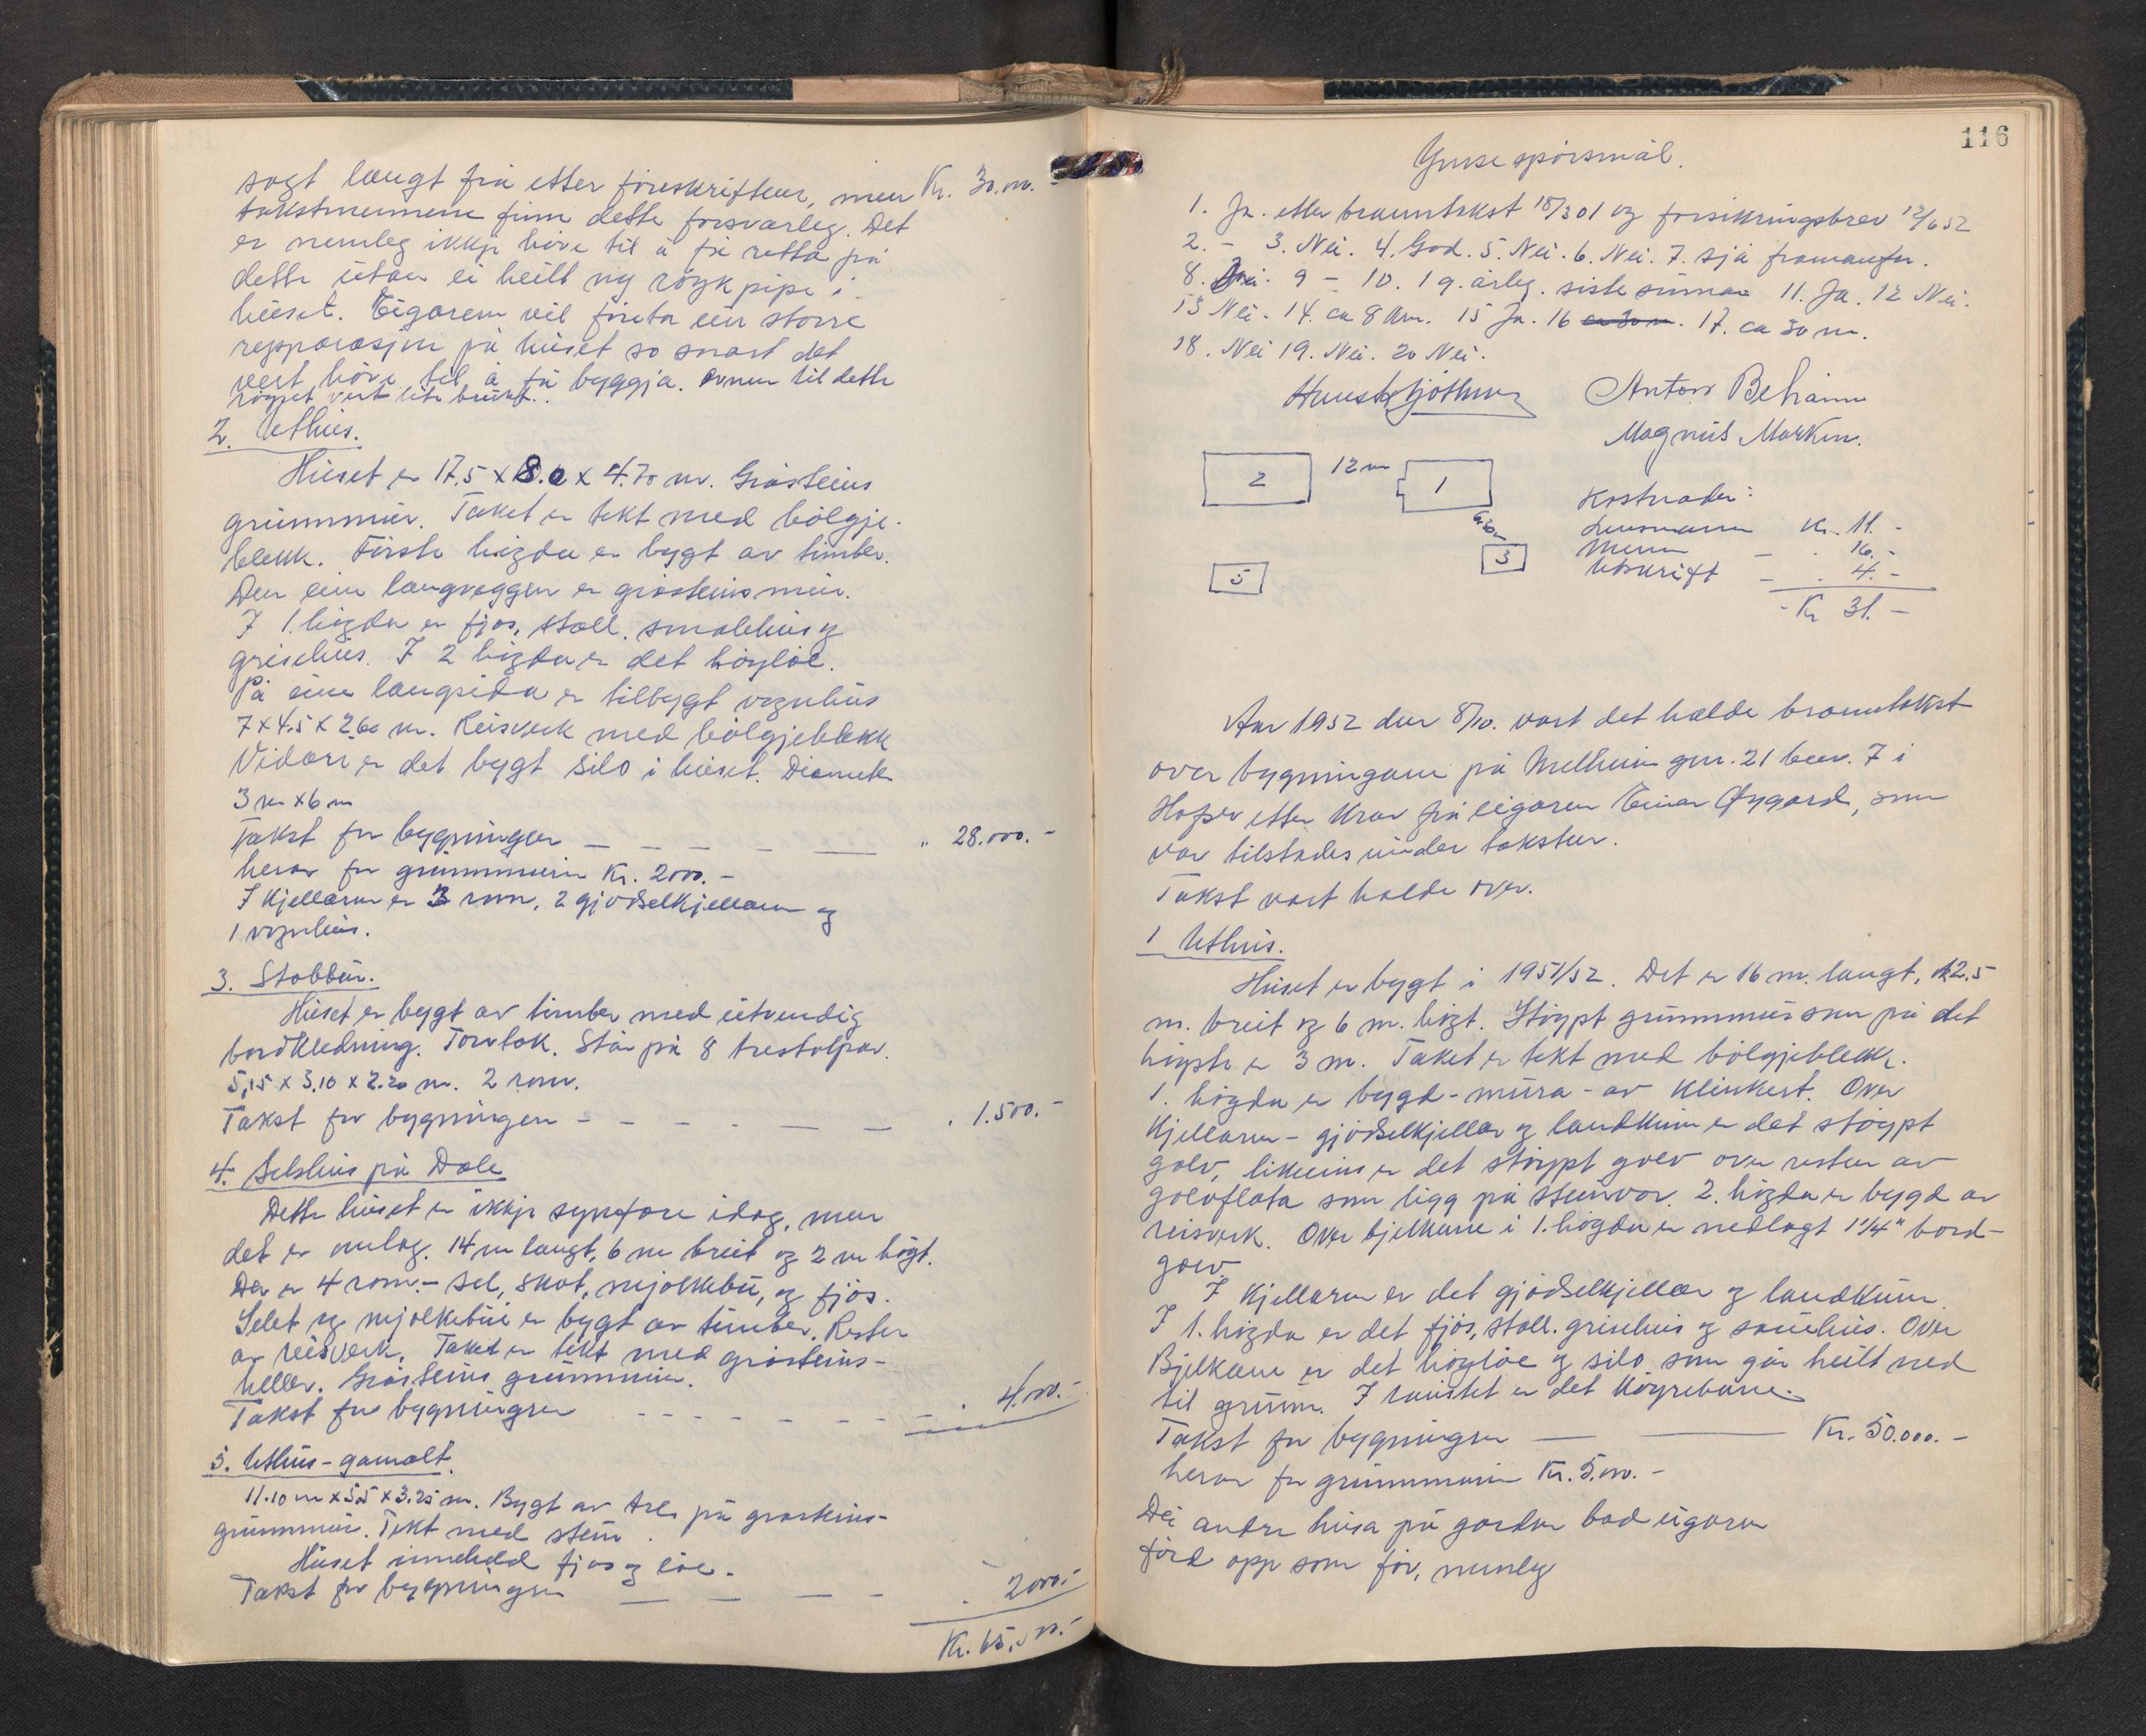 sagt langt frå etter føreskriftene, men Kr. 30.000.-
takstmennene finn dette forsvarleg. Det
er nemleg ikkje høve til å få retta på
dette utan ei heilt ny røykpipe i
huset. Eigaren vil føreta ein større
repparasjon på huset so snart det
vert høve til å få byggja. Ovnen til dette
røyret vert lite brukt.
2. Uthus.
Huset er 17.5 x 8.0 x 4.70 m. Gråsteins
grunnmur. Taket er tekt med bølgje-
blekk. Fyrste høgda er bygt av timber.
Den eine langveggen er gråsteinsmur.
I 1. høgda er fjøs, stall, smalehus og
grisehus. I 2 høgda er det høyløe.
På eine langsida er tilbygt vognhus
7 x 4.5 x 2.60 m. Reisverk med bølgjeblekk
Vidare er det bygt silo i huset. Diameter
3 m x 6 m
Takst for bygningen — — — — — " 28.000.-
herav for grunnmuren Kr. 2000.-
I kjellaren er 3 rom, 2 gjødselkjellarar og
1 vognhus.
3. Stabbur.
Huset er bygt av timber med utvendig
bordkledning. Torvtak. Står på 8 trestolpar.
5,15 x 3.10 x 2.20 m. 2 rom.
Takst for bygningen - - - - — — . 1.500.-
4. Selshus på Dale
Dette huset er ikkje synfare idag, men
det er umlag. 14 m langt, 6 m breit og 2 m høgt.
Der er 4 rom.- sel, skot, mjølkebu, og fjøs.
Selet og mjølkebui er bygt av timber. Resten
av reisverk. Taket er tekt med gråsteins-
heller. Gråsteins grunnmur.
Takst for bygningen - - - - - - - - . 4.000.-
5. Uthus - gamalt.
11.10 m x 5.5 x 3.25 m. Bygt av tre på gråsteins-
grunnmur. Tekt med stein.
Huset inneheld fjøs og løe.
Takst for bygningen — — — - . 2000.-
Kr. 65.500.-
116
Ymse spørsmål.
1. Ja. etter branntakst 18/3 01 og forsikringsbrev 12/6 52
2. - 3. Nei. 4. God. 5. Nei. 6. Nei. 7. sjå framanfor.
8. Nei. 9 - 10. 1 g. årleg. siste sumar 11. Ja. 12 Nei.
13 Nei. 14. ca 8 km. 15 Ja. 16 ca 30 m. 17. ca 30 m.
18. Nei 19. Nei. 20 Nei.
Anton
Magnus
2 12 m 1
3
5
Kostnader:
Lensmann Kr. 11.-
Menn — . 16.-
Utskrift — . 4.-
- Kr 31.-
Aar 1952 den 8/10. vart det halde branntakst
over bygningane på Melheim gnr. 21 bnr. 7 i
etter krav frå eigaren Einar Øygard, som
var tilstades under taksten.
Takst vart halde over.
1 Uthus.
Huset er bygt i 1951/52. Det er 16 m. langt, 12.5
m. breit og 6 m. høgt. Støypt grunnmur som på det
høgste er 3 m. Taket er tekt med bølgjeblekk.
1. høgda er bygd - mura - av klinkert. Over
kjellaren - gjødselkjellar og landkum er det støypt
golv, likeeins er det støypt golv over resten av
golvflata som ligg på steinvor. 2. høgda er bygd av
reisverk. Over bjelkane i 1. høgda er nedlagt 1 1/4" bord-
golv.
I kjellaren er det gjødselkjellar og landkum.
I 1. høgda er det fjøs, stall, grisehus og sauehus. Over
Bjelkane er det høyløe og silo som går heilt ned
til grunn. I raustet er det køyrebane.
Takst for bygningen — — Kr. 50.000.-
herav for grunnmuren Kr. 5.000.-
Dei andre husa på garden bad eigaren
førd opp som før, nemleg